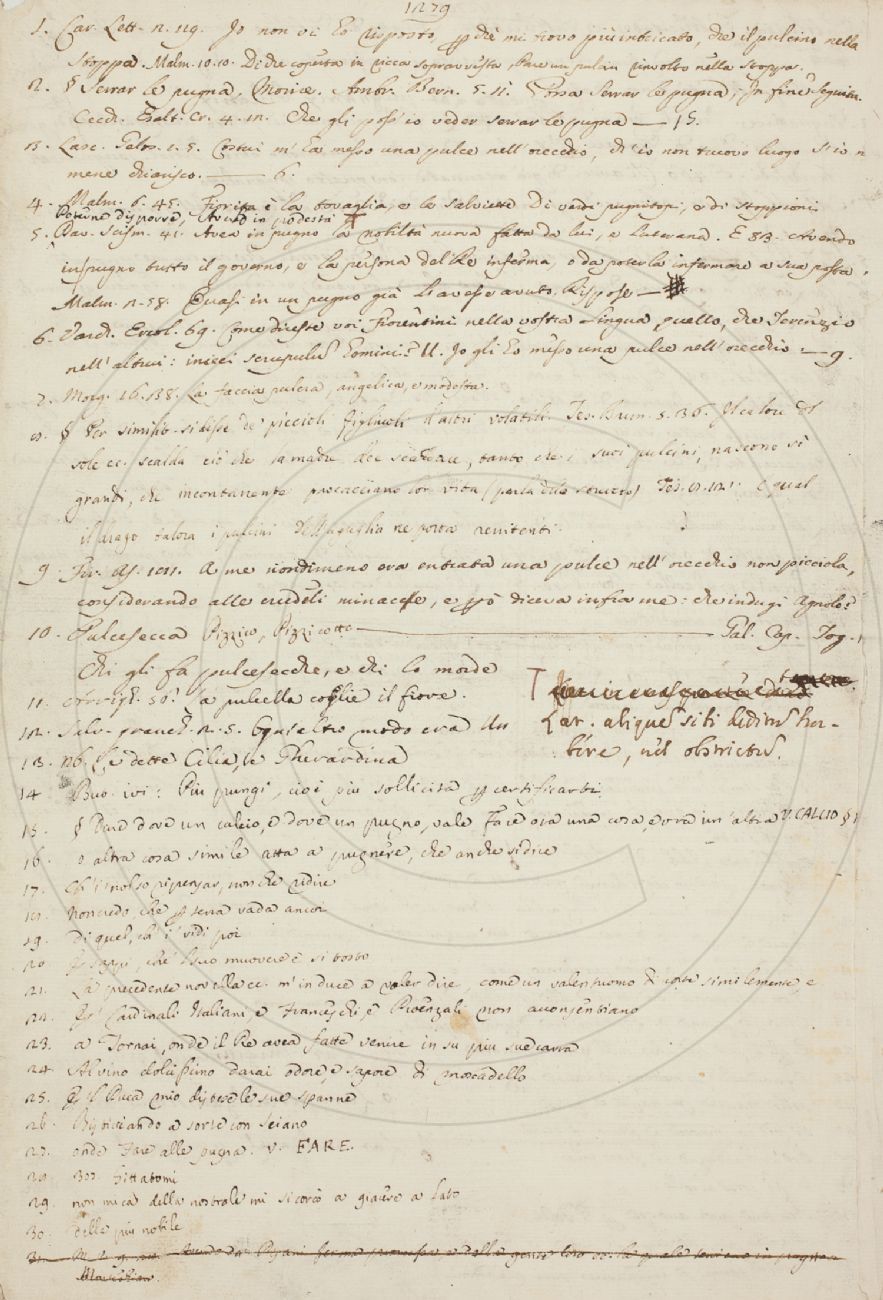 1279
1. Car. Lett. n. 119. Io non vi ho risposto, p̱chè mi trovo più intricato, che il pulcino nella
stoppa. Malm. 10. 10. Di che coperta in ricca sopravvesta, Pare un pulcin rinvolto nella stoppa.
2. § Serrar le pugna, Morire. Ambr. Bern. 5. 11. Possa Serrar le pugna; In fine
Cecch. Esalt. Cr. 4. 12. Che gli poss'io veder serrar le pugna — 15.
3. Lasc. Gelos. 2. 5. Costui m'ha messo una pulce nell'orecchio, ch'io non truovo luogo s'io n
mene chiarisco. — 6.
4. Malm. 6. 45. Fiorita è la tovaglia, e le salviette Di verdi pugnitopi, e di stoppioni
Poterne disporre, Averne in podestà
5. Dav. Scism. 41. Avea in pugno la nobiltà nuova fatta da lui, e Luterana. E 83. Avendo
in pugno tutto il governo, e la persona del Re inferma, o da poterla infermare a sua posta.
Malm. 2. 58. Quasi in un pugno già l'avesse avuto, Rispose —
6. Varch. Ercol. 69. Come direste voi Fiorentini nella vostra lingua quello, che Terenzio
nell'altrui: inieci scrupulũ homini? U. Io gli ho messo una pulce nell'orecchio — 9.
7. Morg. 16. 38. La faccia pulcra, angelica, e modesta.
8. § Per similit. si disse de' piccioli figliuoli d'altri volatili. Tes. Brun. 5. 36. Il calore del
sole ec. scalda ciò che la madre dee scaldare, tanto che i suoi pulcini, nascono sì
grandi, che incontanente procacciano lor vita (parla dello struzzo) Tes. E qual
il drago talora i pulcini Dell'aguglia ne porta renitenti.
9. Fir. As. 101. A me nondimeno era entrata una pulce nell'orecchio non picciola,
considerando alle crudeli minacce, e p̱ò diceva infra me: che indugi Agnolo?
10. Pulcesecca Pizzico, Pizzicotto — Gal. Cap. Tog.
Chi gli fa pulcesecche, e chi lo morde
11. 50. La pulcella coglie il fiore.
12. Salv. 2. 5. E qui altro modo era
13. Nb. Cilia, le Gherardina
T
Lat. aliquem sibi deditum ha-
bere, vel obstrictum.
14 Buo. ivi: Più pungi, cioè più sollicita p̱ certificarti
15. § Dare dove un calcio, e dove un pugno, vale Fare ora una cosa, e ora un'altra V. CALCIO §
16. o altra cosa simile atta a pugnere, che anche si dice
17. ripensar, non che ridire
18. Non credo, che p̱ terra vada ancoi
19. Di quel, ch'i' vidi poi
20. muovere sì tosto
21. La precedente novella ec. m'induce a voler dire, come un valentuomo di corte similemente, e
22. Cardinali Italiani, e Franceschi, e Provenzali non aconsentiano
23. a Tornai, onde il Re avea fatte venire in su più sue carra
24. Al vino dolcissimo darai odore, e sapore di moscadello
25. Il Duca mio distese le sue spanne
26. a sorte con Seiano
27. onde Fare alle pugna. V. FARE.
28. 308. Gittatomi
29. non mica della nostrale mi sicorcò a giacere a lato
30. delle più nobile
31.